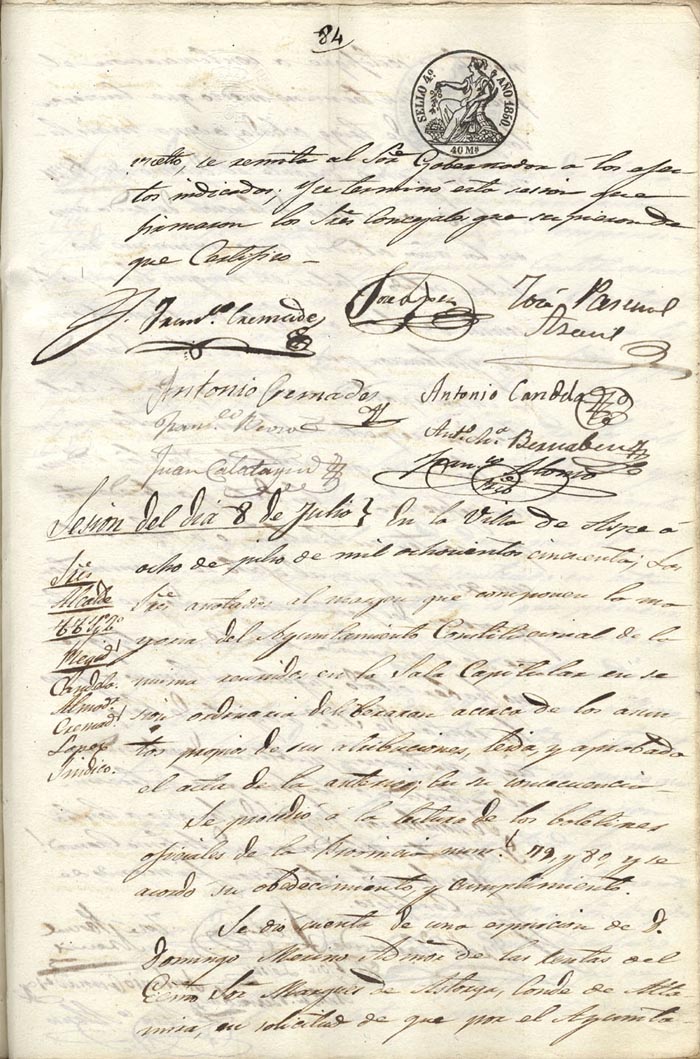 84
SELLO 4º AÑO 1850
40 Ms
se remita al Sor Gobernador a los efec-
tos indicados; y se termino esta sesion que
firmaron los Sres Concejales que supieron de
que Certifico
Franco Cremades
José Pascual
Antonio Cremades
Antonio Candela
Juan Calatayud
Bernabeu
Sesion del dia 8 de Julio} En la Villa de Aspe á
ocho de julio de mil ochocientos cincuenta; Los
Sres
Alcalde
Candela
Almod.
Cremad.
Lopez
Sindico.
Sres anotados al margen que componen la ma-
yoria del Ayuntamiento Constitucional de la
misma reunidos en la Sala Capitular en se-
sion ordinaria deliberaron acerca de los asun-
tos propios de sus atribuciones, leida, y aprobada
el acta de la anterior, en su consecuencia
Se procedió a la lectura de los boletines
oficiales de la Provincia num.s 79, y 80, y se
acordo su obedecimiento, y cumplimiento.
Se dio cuenta de una esposicion de D.
Domingo Admor de las rentas del
Ecmo Sor Marques de Astorga, Conde de Alta-
mira, en solicitud de que por el Ayunta-